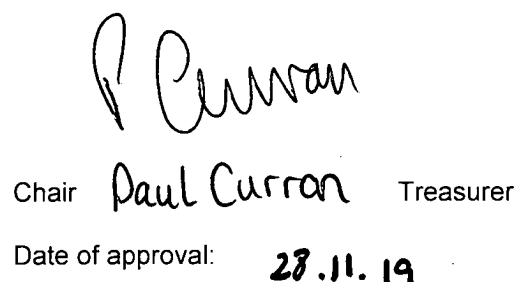 P Curran
Chair Paul Curran Treasurer
Date of approval: 28.11.19